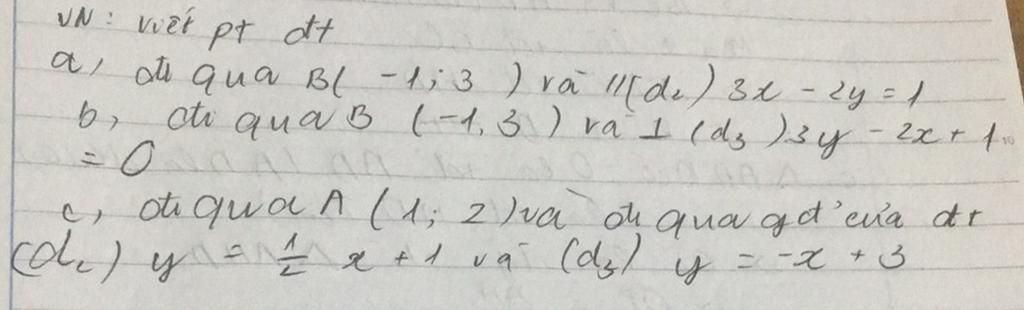 VN: viết pt dt
a, đi qua B( -1; 3 ) và //(d₂) 3x - 2y = 1
b, đi qua B (-1, 3 ) và ⊥ (d₃ ) 3y - 2x + 1
= 0
c, đi qua A (1; 2) và đi qua gđ' của dt
(d₂) y = 1/2 x + 1 và (d₃) y = -x + 3